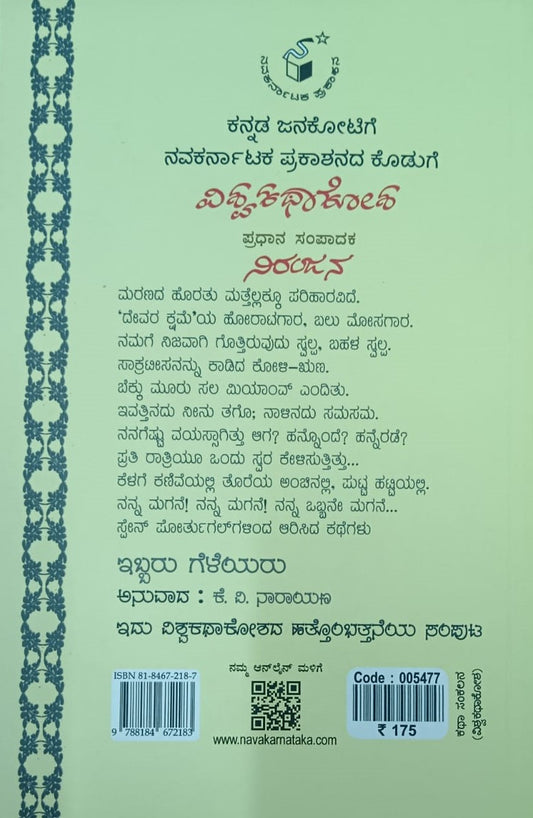 ನವಕರ್ನಾಟಕ ಪ್ರಕಾಶನ
ಕನ್ನಡ ಜನಕೋಟಿಗೆ
ನವಕರ್ನಾಟಕ ಪ್ರಕಾಶನದ ಕೊಡುಗೆ
ವಿಶ್ವಕಥಾಕೋಶ
ಪ್ರಧಾನ ಸಂಪಾದಕ
ನಿರಂಜನ
ಮರಣದ ಹೊರತು ಮತ್ತೆಲ್ಲಕ್ಕೂ ಪರಿಹಾರವಿದೆ.
'ದೇವರ ಕ್ಷಮೆ'ಯ ಹೋರಾಟಗಾರ, ಬಲು ಮೋಸಗಾರ.
ನಮಗೆ ನಿಜವಾಗಿ ಗೊತ್ತಿರುವುದು ಸ್ವಲ್ಪ, ಬಹಳ ಸ್ವಲ್ಪ.
ಸಾಕ್ರಟೀಸನನ್ನು ಕಾಡಿದ ಕೋಳಿ-ಋಣ.
ಬೆಕ್ಕು ಮೂರು ಸಲ ಮಿಯಾಂವ್ ಎಂದಿತು.
ಇವತ್ತಿನದು ನೀನು ತಗೊ; ನಾಳಿನದು ಸಮಸಮ.
ನನಗೆಷ್ಟು ವಯಸ್ಸಾಗಿತ್ತು ಆಗ? ಹನ್ನೊಂದೆ? ಹನ್ನೆರಡೆ?
ಪ್ರತಿ ರಾತ್ರಿಯೂ ಒಂದು ಸ್ವರ ಕೇಳಿಸುತ್ತಿತ್ತು...
ಕೆಳಗೆ ಕಣಿವೆಯಲ್ಲಿ ತೊರೆಯ ಅಂಚಿನಲ್ಲಿ, ಪುಟ್ಟ ಹಟ್ಟಿಯಲ್ಲಿ.
ನನ್ನ ಮಗನೆ! ನನ್ನ ಮಗನೆ! ನನ್ನ ಒಬ್ಬನೇ ಮಗನೆ...
ಸ್ಪೇನ್ ಪೋರ್ತುಗಲ್‌ಗಳಿಂದ ಆರಿಸಿದ ಕಥೆಗಳು
ಇಬ್ಬರು ಗೆಳೆಯರು
ಅನುವಾದ : ಕೆ. ವಿ. ನಾರಾಯಣ
ಇದು ವಿಶ್ವಕಥಾಕೋಶದ ಹತ್ತೊಂಬತ್ತನೆಯ ಸಂಪುಟ
ISBN 81-8467-218-7
9 788184 672183
ನಮ್ಮ ಆನ್‌ಲೈನ್ ಮಳಿಗೆ
www.navakarnataka.com
Code : 005477
₹ 175
ಕಥಾ ಸಂಕಲನ
(ವಿಶ್ವಕಥಾಕೋಶ)